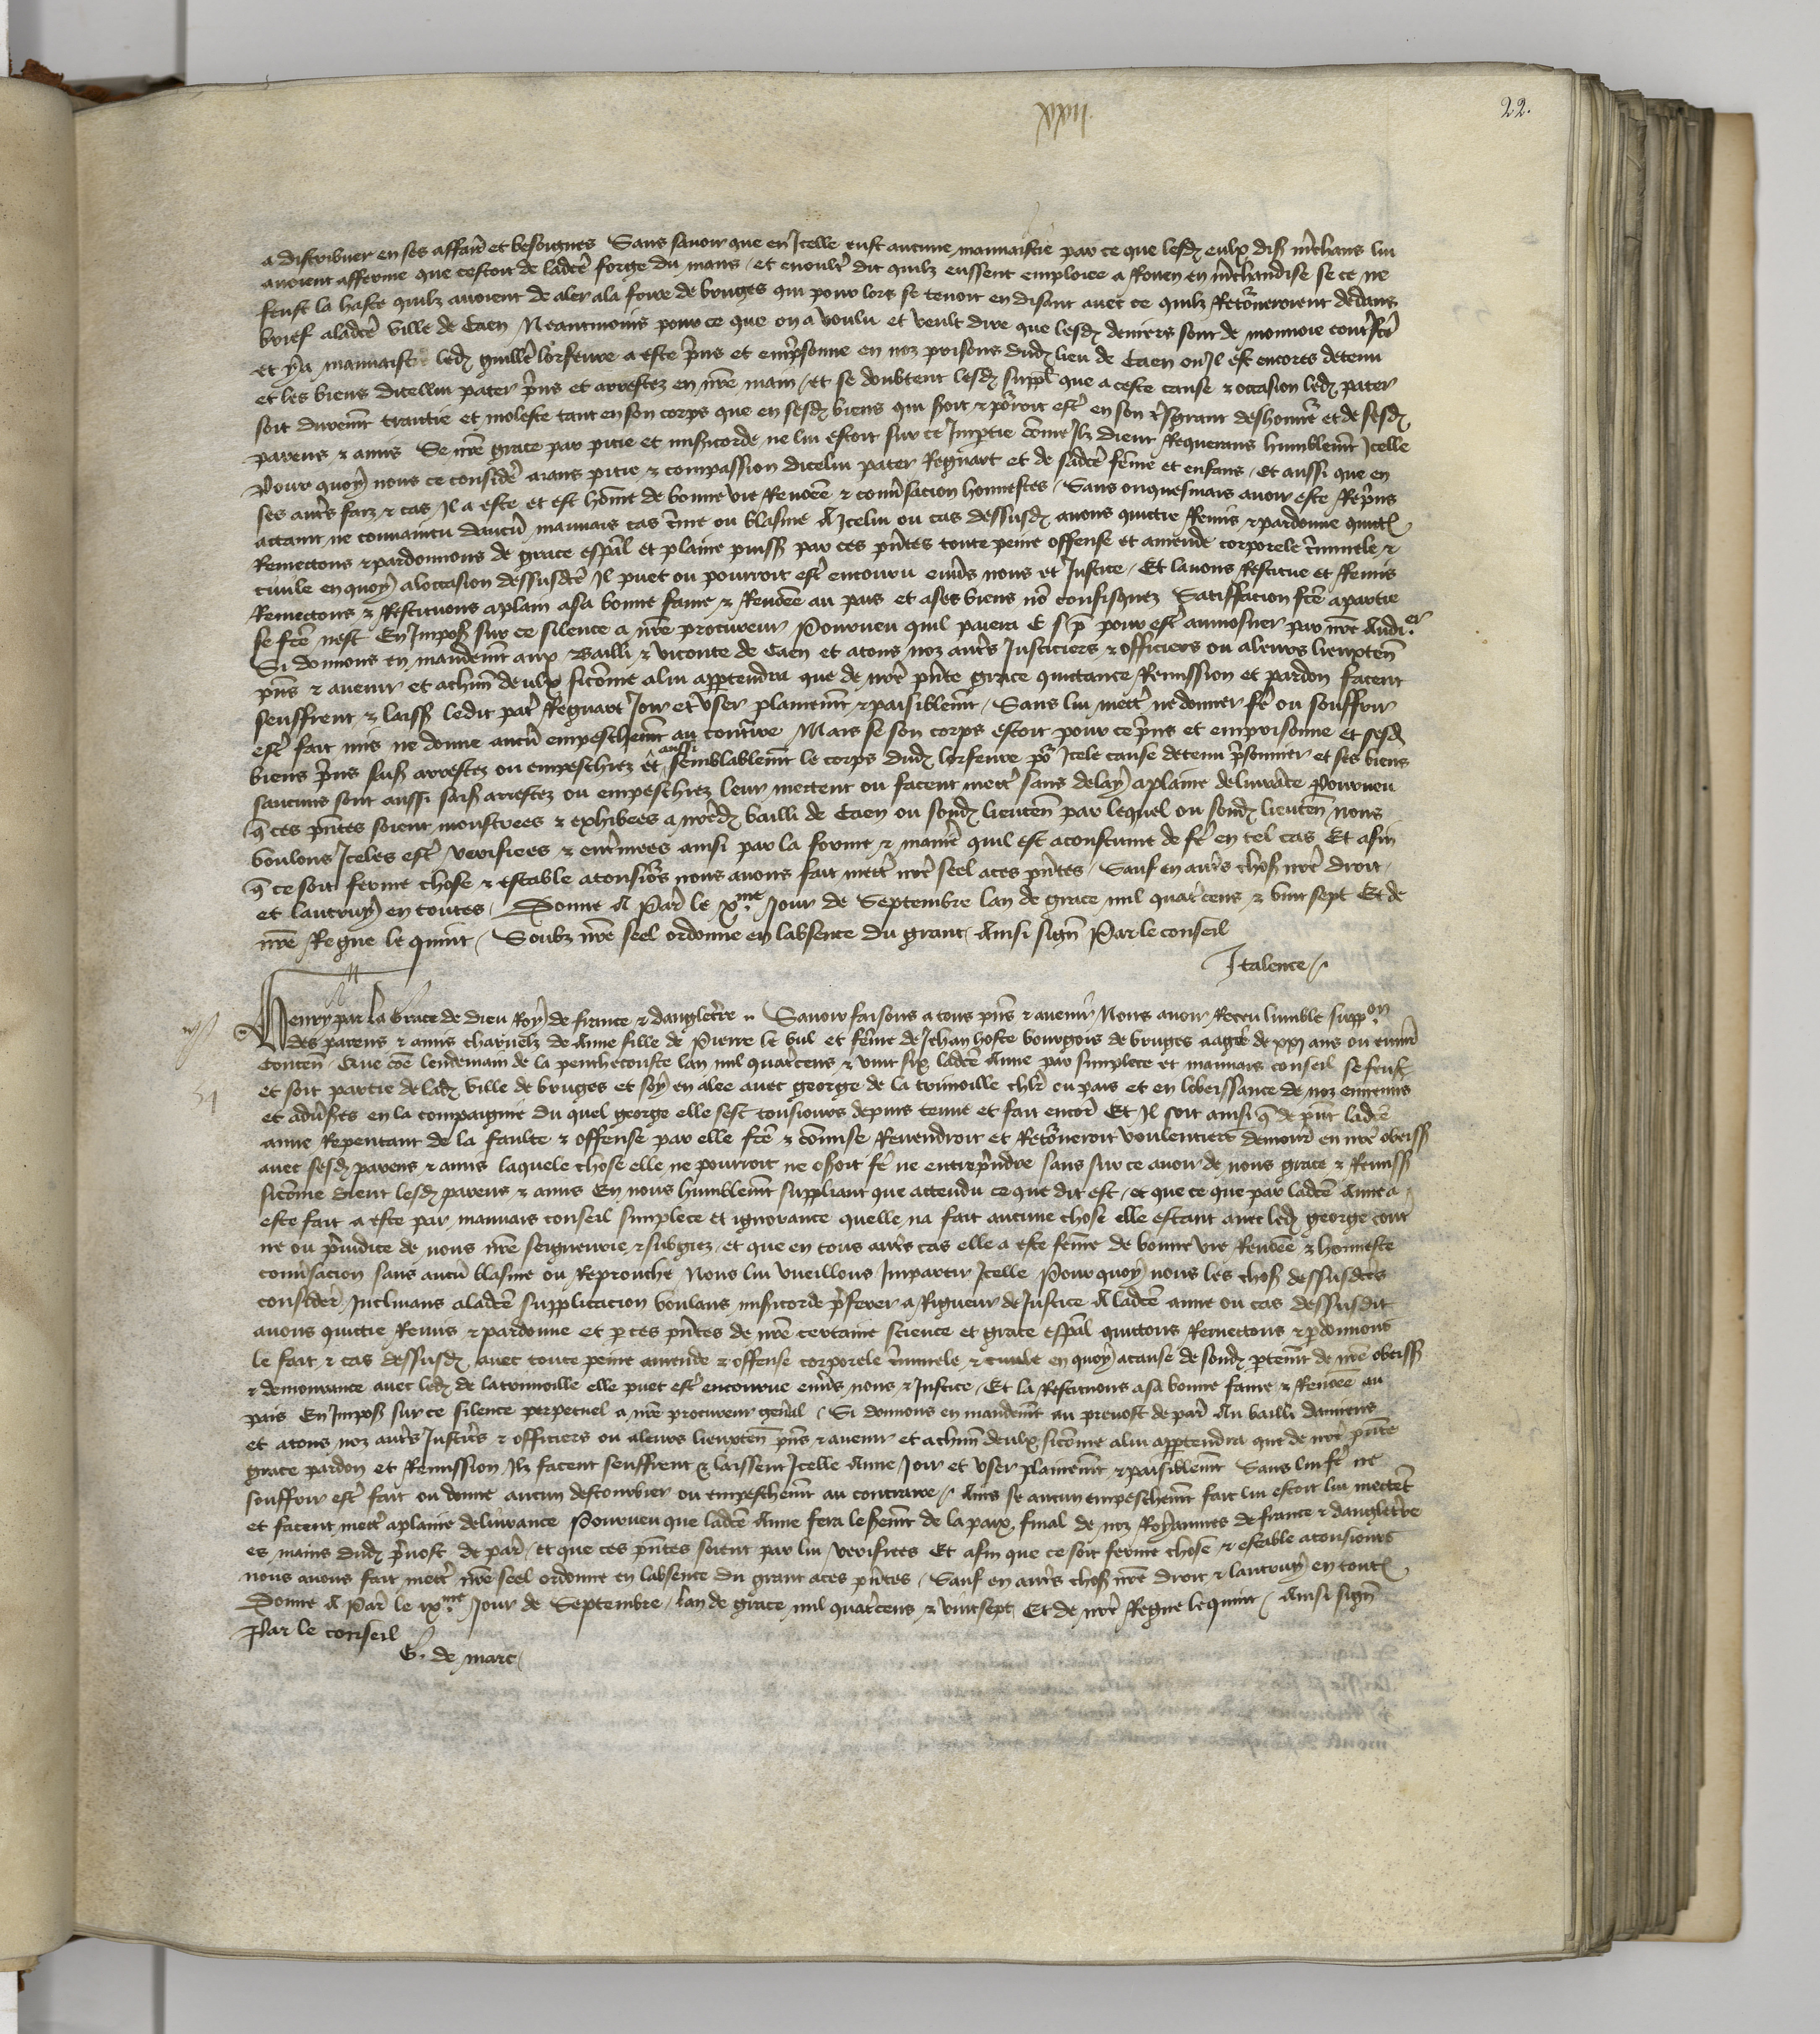 xxii
22.
a distribuer en ses affaires et besoignes Sans savoir que en Icelle eust aucune mauvaistie par ce que lesd eulx dis mrchans lui
avoient afferme que cestoit de ladce forge du mans / et enoultre dit quilz eussent emploiee a Rouen en mrchandise se ce ne
feust la haste quilz avoient de aler ala foire de bruges qui pour lors se tenoit en disant avec ce quilz Retorneroient dedans
brief aladce ville de Caen Neantmoins pour ce que on a voulu et veult dire que lesd deniers sont de monnoie contrefce
et y a mauvaistie led guille lorfevre a este prins et emprisonne en noz prisons dud lieu de Caen ou Il est encores detenu
et les biens dicellui pater prins et arrestez en nre main / et se doubtent lesd suppl que a ceste cause & occasion led pater
soit durement traictie et moleste tant en son corps que en sesd biens qui seroit & porroit estre en son tresgrant deshonneur et de sesd
parens & amis Se nre grace par pitie et misericorde ne lui estoit sur ce Impartie come Ilz dient Requerans humblemt Icelle
Pour quoy nous ce considere aians pitie & compassion dicelui pater Regnart et de sadce feme et enfans / Et aussi que en
ses autres faiz & cas Il a este et est home de bonne vie Renomee & conversacion honnestes / Sans onquesmais avoir este Reprins
actaint ne convaincu daucun mauvais cas crime ou blasme A Icelui ou cas dessusd avons quictie Remis & pardonne quict
Remectons & pardonnons de grace espal et plaine puiss par ces pntes toute peine offense et amende corporele criminele &
civile en quoy aloccasion dessusdce Il puet ou pourroit estre encouru envers nous et Justice / Et lavons Restitue et Remis
Remectons & Restituons aplain asa bonne fame & Renomee au pais et ases biens non confisquez Satisfacion fce apartie
se fce nest En Imposant sur ce silence a nre procureur Pourveu quil paiera C s p pour estre aumosner par nre Audi.er
Si donnons en mandemt aux Bailli & viconte de Caen et atous noz autres Justiciers & officiers ou aleurs lieuxten
pns & avenir et achun deulx sicome alui appartendra que de nre pnte grace quictance Remission et pardon facent
seuffrent & laiss ledit pater Regnart Joir et User plainemt & paisiblemt / Sans lui mectre ne donner fe ou souffrir
estre fait mis ne donne aucun empeschemt au contraire Mais se son corps estoit pour ce prins et emprisonne et sesd
biens prins sais arrestez ou empeschiez et aussi semblablemt le corps dud lorfevre por Icele cause detenu prisonnier et ses biens
saucuns sont aussi saisiz arrestez ou empeschiez leur mectent ou facent mectre sans delay aplaine delivrance Pourveu
q ces pntes soient monstrees & exhibees a nred bailli de Caen ou sond lieuten par lequel ou sond lieuten nous
voulons Iceles estre verifiees & enterinees ainsi par la forme & maniere quil est acoustume de fe en tel cas Et afin
q ce soit ferme chose & estable atousiors nous avons fait mectre nre seel aces pntes / Sauf en autres choses nre droit
et lautruy en toutes / Donne A Paris le xme Jour de Septembre lan de grace mil quatrecens & vint sept Et de
nre Regne le quint / Soubz nre seel ordonne en labsence du grant Ainsi signe Par le conseil
J talence /
Henry par la Grace de dieu Roy de france & dangleterre Savoir faisons a tous pns & avenir Nous avoir Receu lumble suppon
des parens & amis charnelz de Anne fille de Pierre le bul et feme de Jehan hoste bourgois de bruges aagee de xxi ans ou environ
Conten Que come lendemain de la penthecouste lan mil quatrecens & vint six ladce Anne par simplece et mauvais conseil se feust
et soit partie de lad ville de bruges et soy en alee avec george de la trimoille chlr ou pais et en lobeissance de noz ennemis
et adversres en la compaignie du quel george elle sest tousiours depuis tenue et fait encore Et Il soit ainsi q de pnt ladce
anne Repentant de la faulte & offense par elle fce & comise Revendroit et Retorneroit voulentiers demourer en nre obeiss
avec sesd parens & amis laquele chose elle ne pourroit ne oseroit fe ne entreprendre sans sur ce avoir de nous grace & Remiss
sicome dient lesd parens & amis En nous humblemt suppliant que attendu ce que dit est / et que ce que par ladce Anne a
este fait a este par mauvais conseil simplece et ignorance quelle na fait aucune chose elle estant avec led george contre
ne ou preiudice de nous nre seigneurie & subgiez / et que en tous autres cas elle a este feme de bonne vie Renomee & honneste
conversacion sans aucun blasme ou Reprouche Nous lui vueillons Impartir Icelle Pour quoy nous les choses dessusdces
considere Inclinans aladce supplicacion voulans misericorde preferer a Rigueur de Justice A ladce anne ou cas dessusdit
avons quictie Remis & pardonne et p ces pntes de nre certaine science et grace espal quictons Remectons & pardonnons
le fait & cas dessusd avec toute peine amende & offense corporele criminele & civile en quoy acause de sond partemt de nre obeiss
& demourance avec led de latrimoille elle puet estre encourue envers nous & Justice / Et la Restituons asa bonne fame & Renomee au
pais En Imposant sur ce silence perpetuel a nre procureur general / Si donnons en mandemt au prevost de paris Au bailli damiens
et atous noz autres Justiciers & officiers ou aleurs lieuxten pns & avenir et achun deulx sicome alui appartendra que de nre pnte
grace pardon et Remission Ilz facent seuffrent & laissent Icelle Anne Joir et User plainemt & paisiblemt Sans lui fe ne
souffrir estre fait ou donne aucun destourbier ou empeschemt au contraire / Ains se aucun empeschemt fait lui estoit lui mectent
et facent mectre aplaine delivrance Pourveu que ladce Anne fera le serment de la paix final de noz Royaumes de france & dangleterre
es mains dud prevost de paris / et que ces pntes soient par lui verifiees Et afin que ce soit ferme chose & estable atousiours
nous avons fait mectre nre seel ordonne en labsence du grant aces pntes / Sauf en autres choses nre droit & lautruy en toutes
Donne A Paris le ixme Jour de Septembre / Lan de grace mil quatrecens & vintsept Et de nre Regne le quint / Ainsi signe
Par le conseil
G. de marc